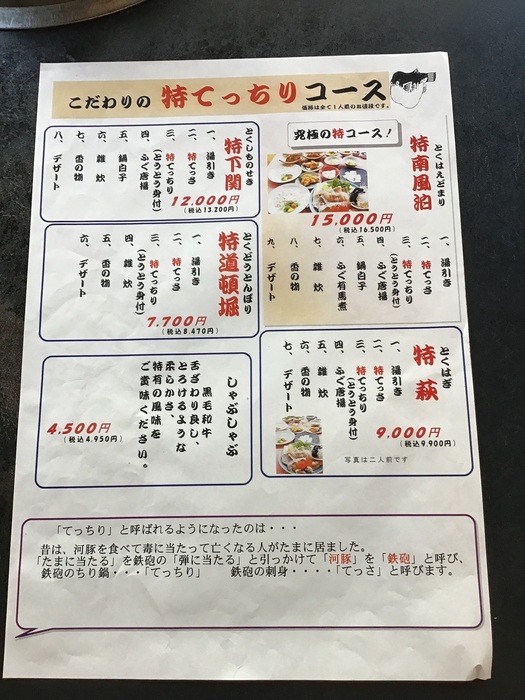 こだわりの 特てっちりコース
価格は全て1人前のお値段です。
究極の特コース！
とくはえどまり
特南風泊
15,000円
(税込16,500円)
一、湯引き
二、特てっさ
三、特てっちり
(とうとう身付)
四、ふく唐揚
五、鍋白子
六、ふく有馬煮
七、雑炊
八、香の物
九、デザート
とくしものせき
特下関
一、湯引き
二、特てっさ
三、特てっちり
(とうとう身付)
四、ふく唐揚
五、鍋白子
六、雑炊
七、香の物
八、デザート
12,000円
(税込13,200円)
とくどうとんぼり
特道頓堀
一、湯引き
二、特てっさ
三、特てっちり
(とうとう身付)
四、雑炊
五、香の物
六、デザート
7,700円
(税込8,470円)
とくはぎ
特萩
一、湯引き
二、特てっさ
三、特てっちり
(とうとう身付)
四、ふく唐揚
五、雑炊
六、香の物
七、デザート
9,000円
(税込9,900円)
写真は二人前です
しゃぶしゃぶ
黒毛和牛
舌ざわり良し、
とろけるような
柔らかさ、
特有の風味を
ご賞味ください。
4,500円
(税込4,950円)
「てっちり」と呼ばれるようになったのは・・・
昔は、河豚を食べて毒に当たって亡くなる人がたまに居ました。
「たまに当たる」を鉄砲の「弾に当たる」と引っかけて「河豚」を「鉄砲」と呼び、
鉄砲のちり鍋・・・「てっちり」 鉄砲の刺身・・・・「てっさ」と呼びます。